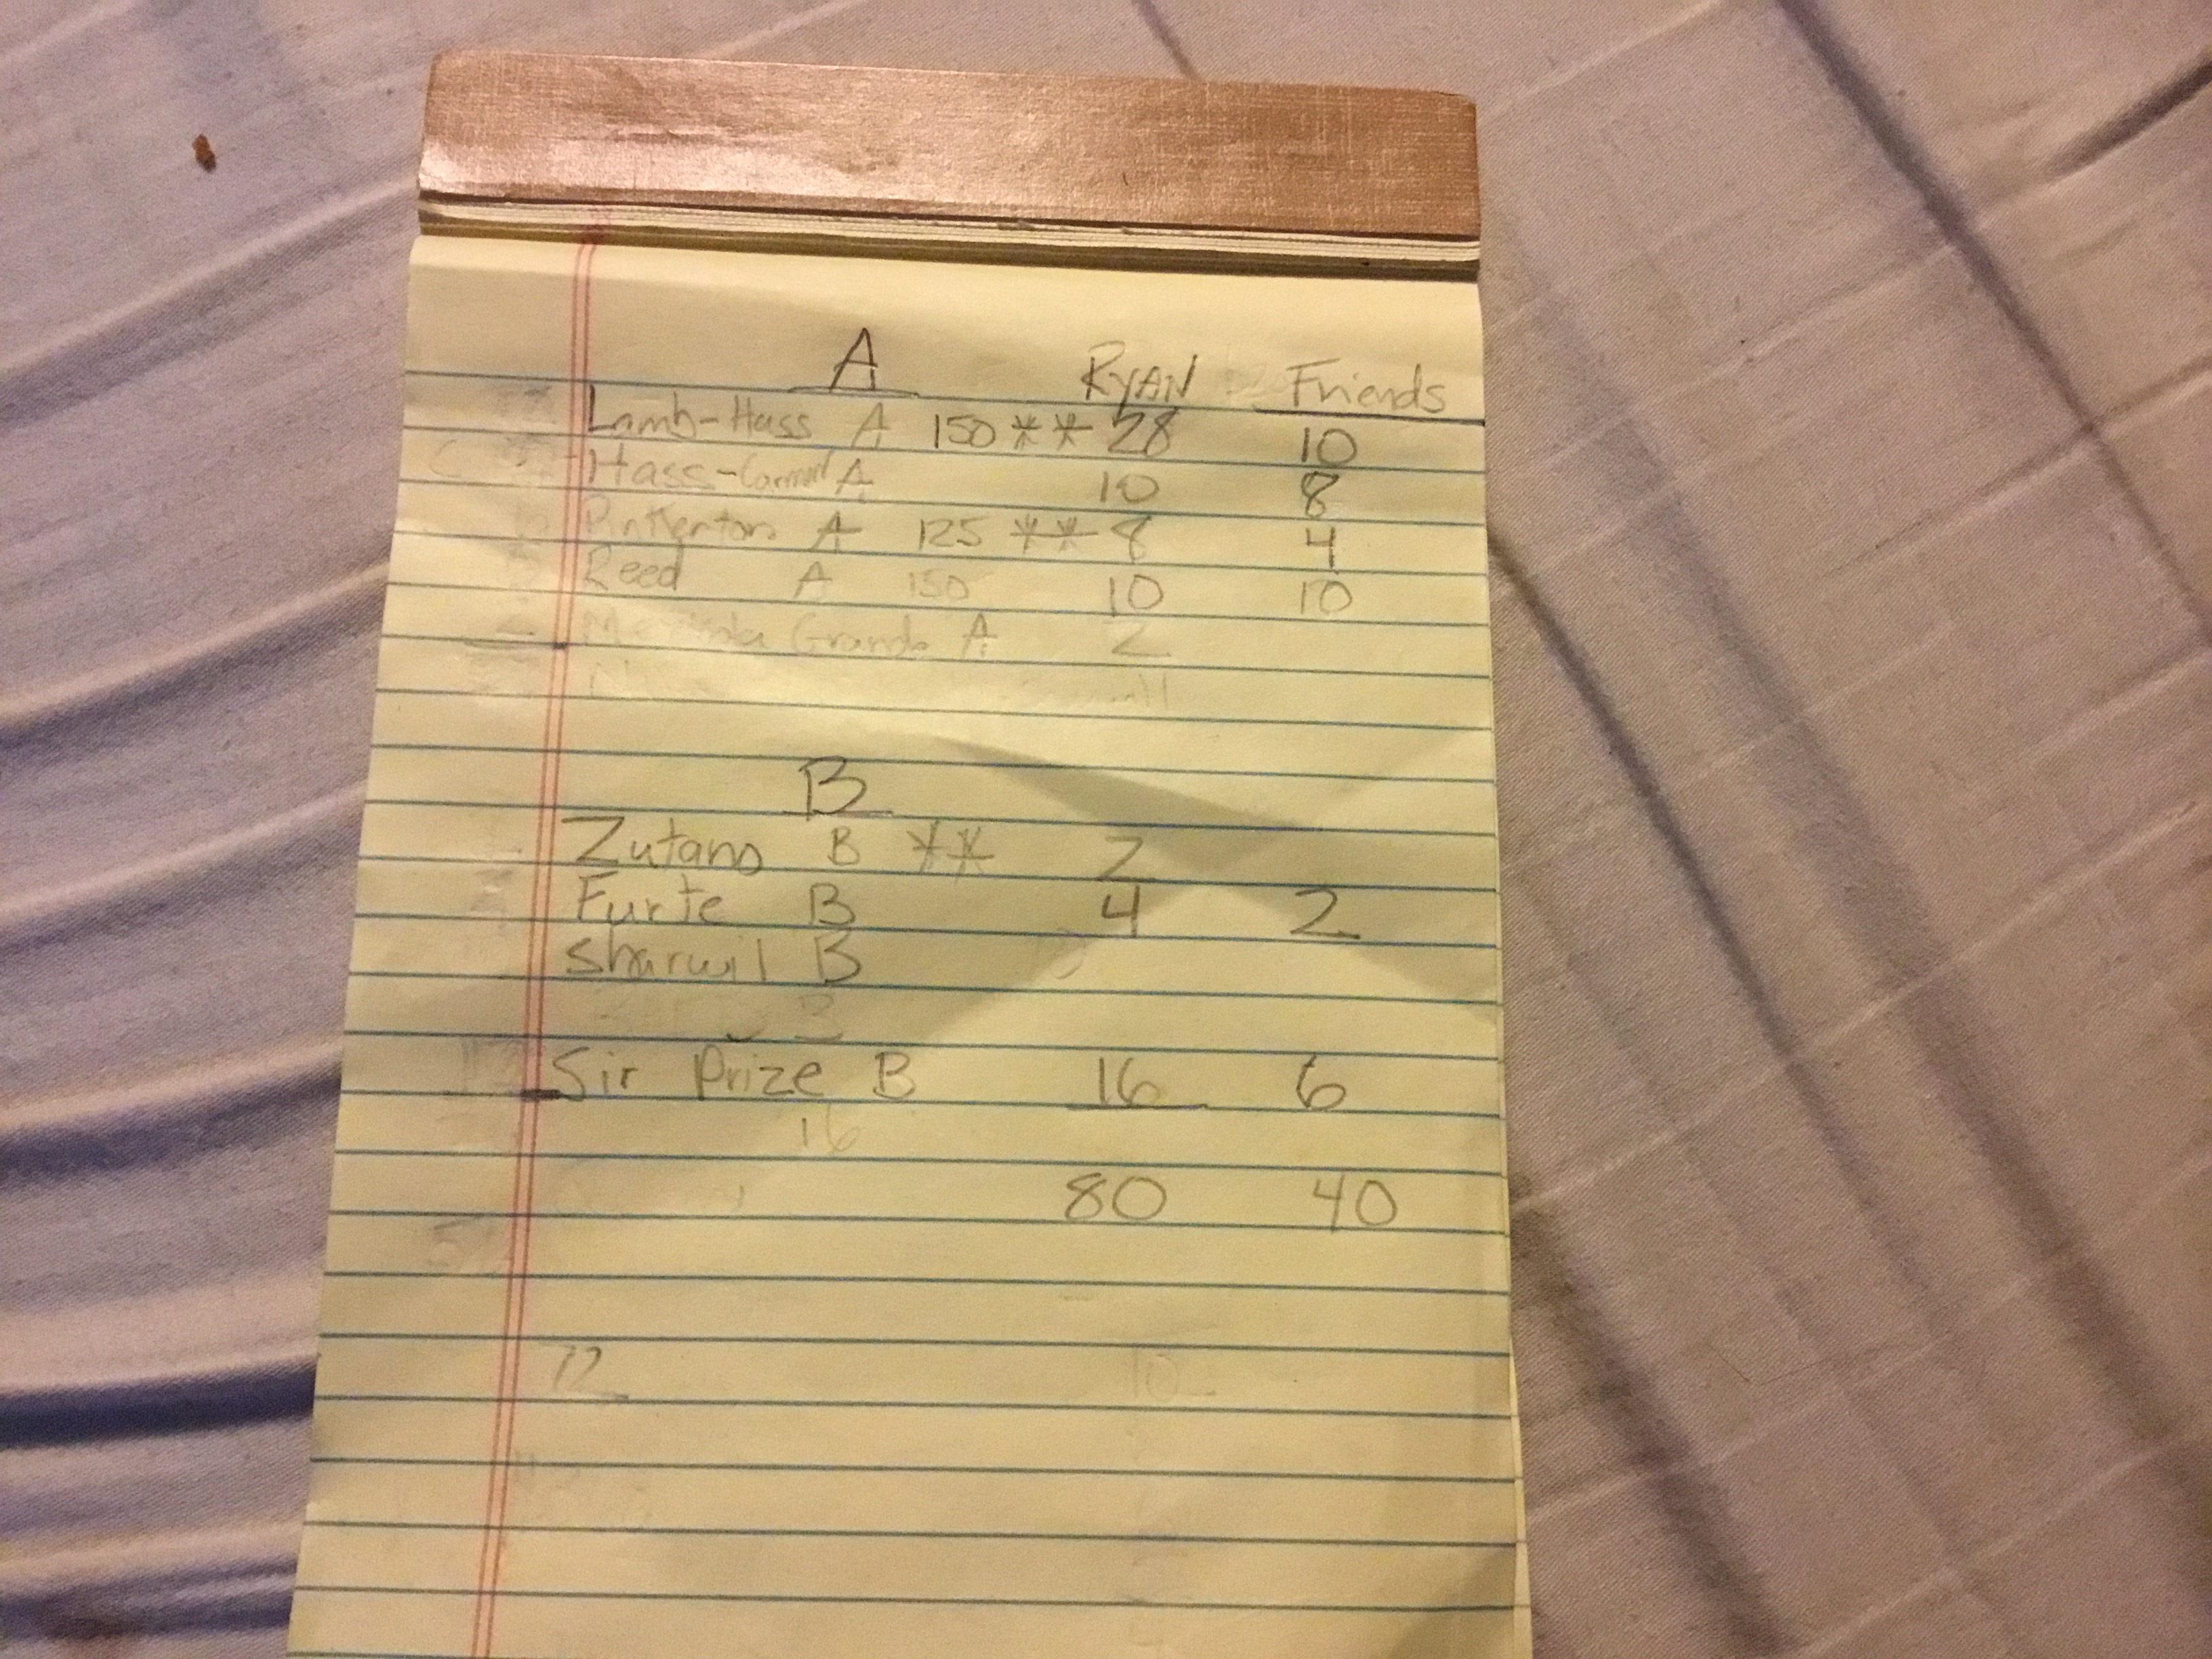 A RYAN Friends
Lamb-Hass A 150 ** 28 10
Hass-Carmen A 10 8
Pinkerton A 125 ** 8 4
Reed A 150 10 10
Grande A 2
B
Zutano B ** 2
Furte B 4 2
Sharwil B
B
Sir Prize B 16 6
16
80 40
72 10